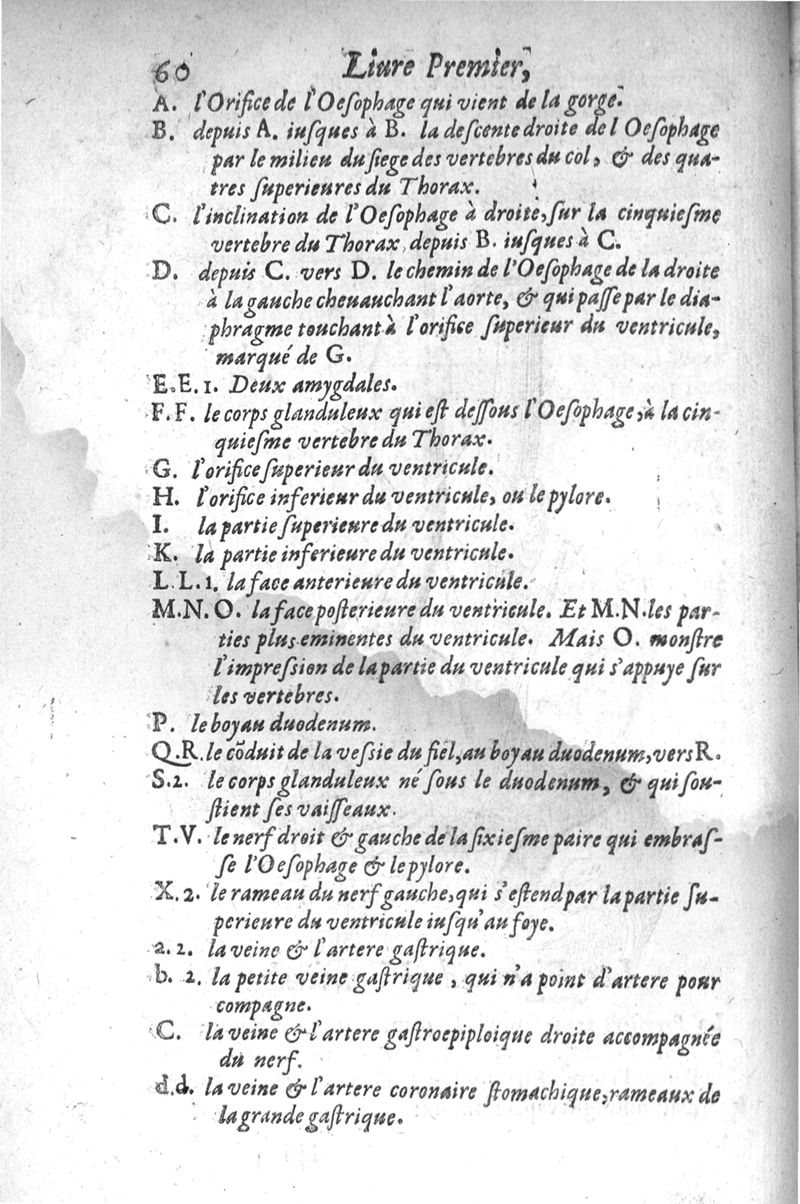 60 Liure Premier,
A. l'Orifice de l'Oeſophage qui vient de la gorge.
B. depuis A. iuſques à B. la deſcente droite de l Oeſophage
par le milieu du ſiege des vertebres du col, & des qua-
tres ſuperieures du Thorax.
C. l'inclination de l'Oeſophage à droite, ſur la cinquieſme
vertebre du Thorax, depuis B. iuſques à C.
D. depuis C. vers D. le chemin de l'Oeſophage de la droite
à la gauche cheuauchant l'aorte, & qui paſſe par le dia-
phragme touchant à l'orifice ſuperieur du ventricule,
marqué de G.
E.E. 1. Deux amygdales.
F.F. le corps glanduleux qui eſt deſſous l'Oeſophage, à la cin-
quieſme vertebre du Thorax.
G. l'orifice ſuperieur du ventricule.
H. l'orifice inferieur du ventricule, ou le pylore.
I. la partie ſuperieure du ventricule.
K. la partie inferieure du ventricule.
L.L.1. la face anterieure du ventricule.
M.N.O. la face poſterieure du ventricule. Et M.N. les par-
ties plus eminentes du ventricule. Mais O. monſtre
l'impreſsion de la partie du ventricule qui s'appuye ſur
les vertebres.
P. le boyau duodenum.
Q.R. le cõduit de la veſsie du fiel, au boyau duodenum, vers R.
S.2. le corps glanduleux né ſous le duodenum, & qui ſou-
ſtient ſes vaiſſeaux.
T.V. le nerf droit & gauche de la ſixieſme paire qui embraſ-
ſe l'Oeſophage & le pylore.
X.2. le rameau du nerf gauche, qui s'eſtend par la partie ſu-
perieure du ventricule iuſqu'au foye.
a.2. la veine & l'artere gaſtrique.
b. 2. la petite veine gaſtrique, qui n'a point d'artere pour
compagne.
C. la veine & l'artere gaſtroepiploique droite accompagnée
du nerf.
d.d. la veine & l'artere coronaire ſtomachique, rameaux de
la grande gaſtrique.